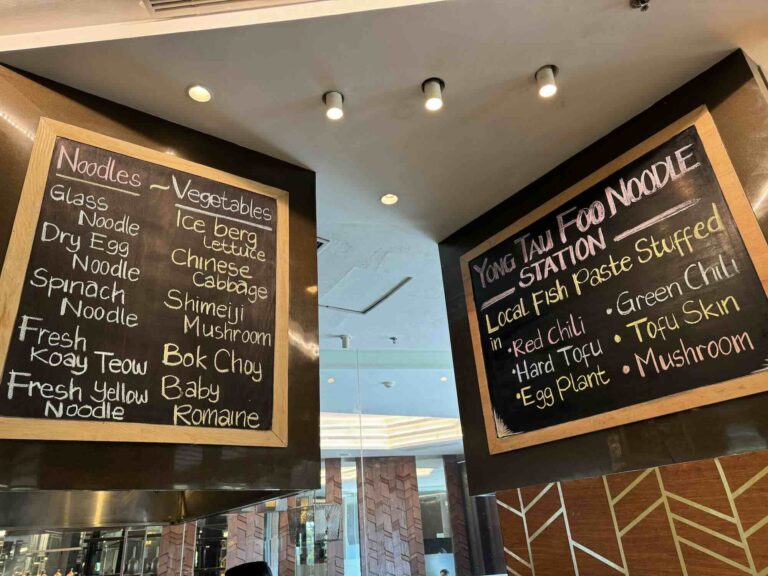 Noodles ~ Vegetables
Glass
Noodle
Dry Egg
Noodle
Spinach
Noodle
Fresh
Koay Teow
Fresh Yellow
Noodle
Ice berg
Lettuce
Chinese
Cabbage
Shimeiji
Mushroom
Bok Choy
Baby
Romaine
Yong Tau Foo Noodle
Station
Local Fish Paste Stuffed
in
• Red Chili
• Hard Tofu
• Egg Plant
• Green Chili
• Tofu Skin
• Mushroom